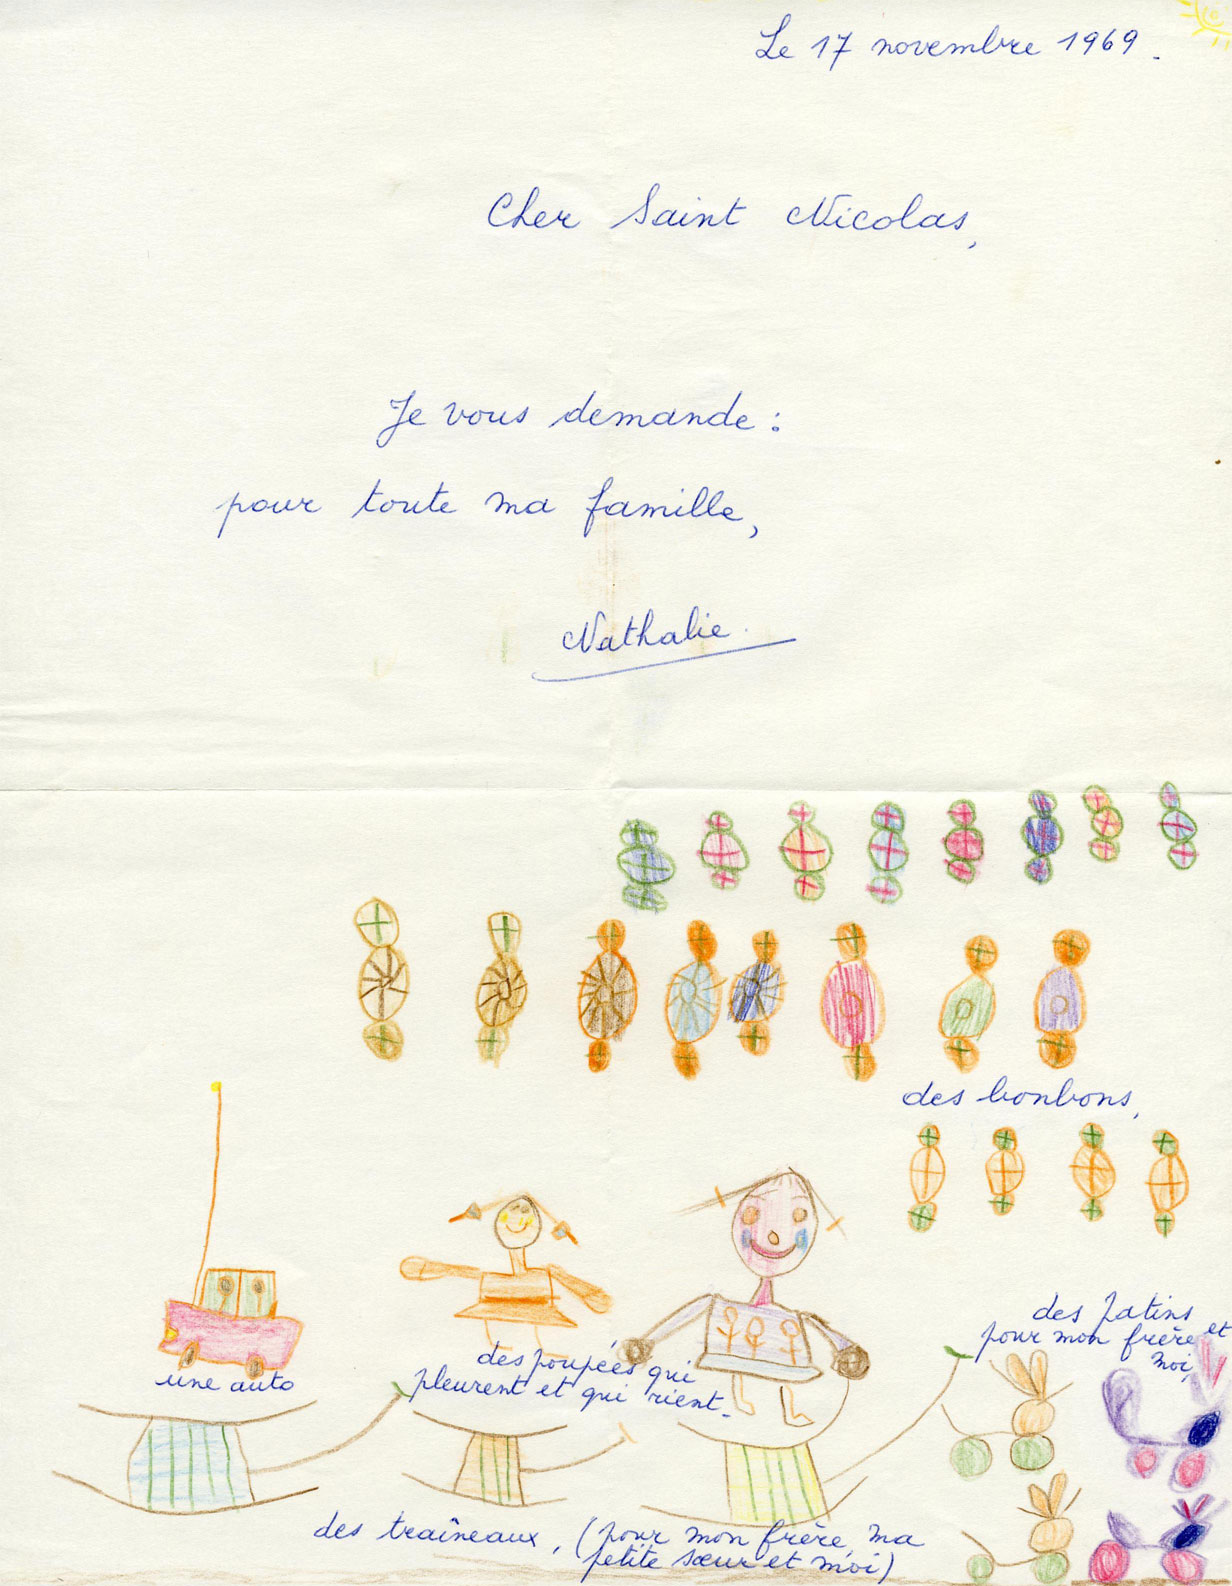 Le 17 novembre 1969.
Cher Saint Nicolas,
Je vous demande :
pour toute ma famille,
Nathalie.
des bonbons,
des patins
pour mon frère et
moi,
une auto
des poupées qui
pleurent et qui rient.
des traîneaux, (pour mon frère, ma
petite sœur et moi)